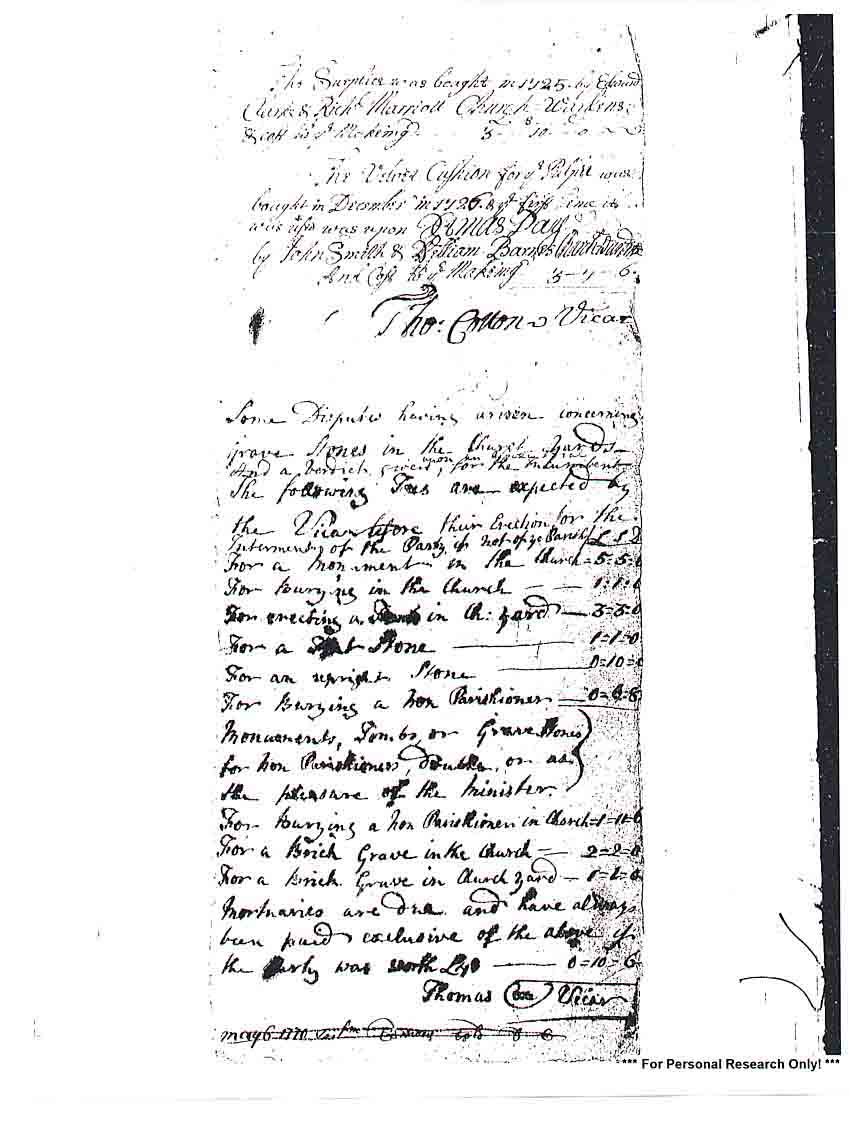 The Surplice was bought in 1725 by Edward
Clarke & Richd Marriott Church Wardens
& cost in ye Makeing 3 - 10 - 0
The Velvet Cushion for ye Pulpit was
bought in December in 1726 & ye first time it
was used was upon Xtmas Day
by John Smith & William Barnes Church Wardens
And Cost in ye Makeing 3 - 4 - 6
Tho: Cotton Vicar
Some Disputes having arisen concerning
grave Stones in the Church Yards
And a Verdict given, for the Incumbent
The following Fees are expected by
the Vicar before their Erection or the
Interment of the Party if not of ye Parish L S D
For a Monument in the Church = 5 = 5 = 0
For Burying in the Church — 1 = 1 = 0
For erecting a in Ch: yard — 3 = 3 = 0
For a Flat Stone — 1 = 1 = 0
For an upright Stone — 0 = 10 =
For Burying a Non Parishioner — 0 =
Monuments, Tombs or Grave Stones
for Non Parishioners, double, or as
the pleasure of the Minister.
For Burying a Non Parishioner in Church = 1 =
For a Brick Grave in the Church = 2 = 2 = 0
For a Brick Grave in Church yard — 1 = 1 = 0
Mortuaries are due and have always
been paid exclusive of the above if
the Party was worth — 0 = 10 = 6
Thomas Vicar
May 6 1770
*** For Personal Research Only! ***